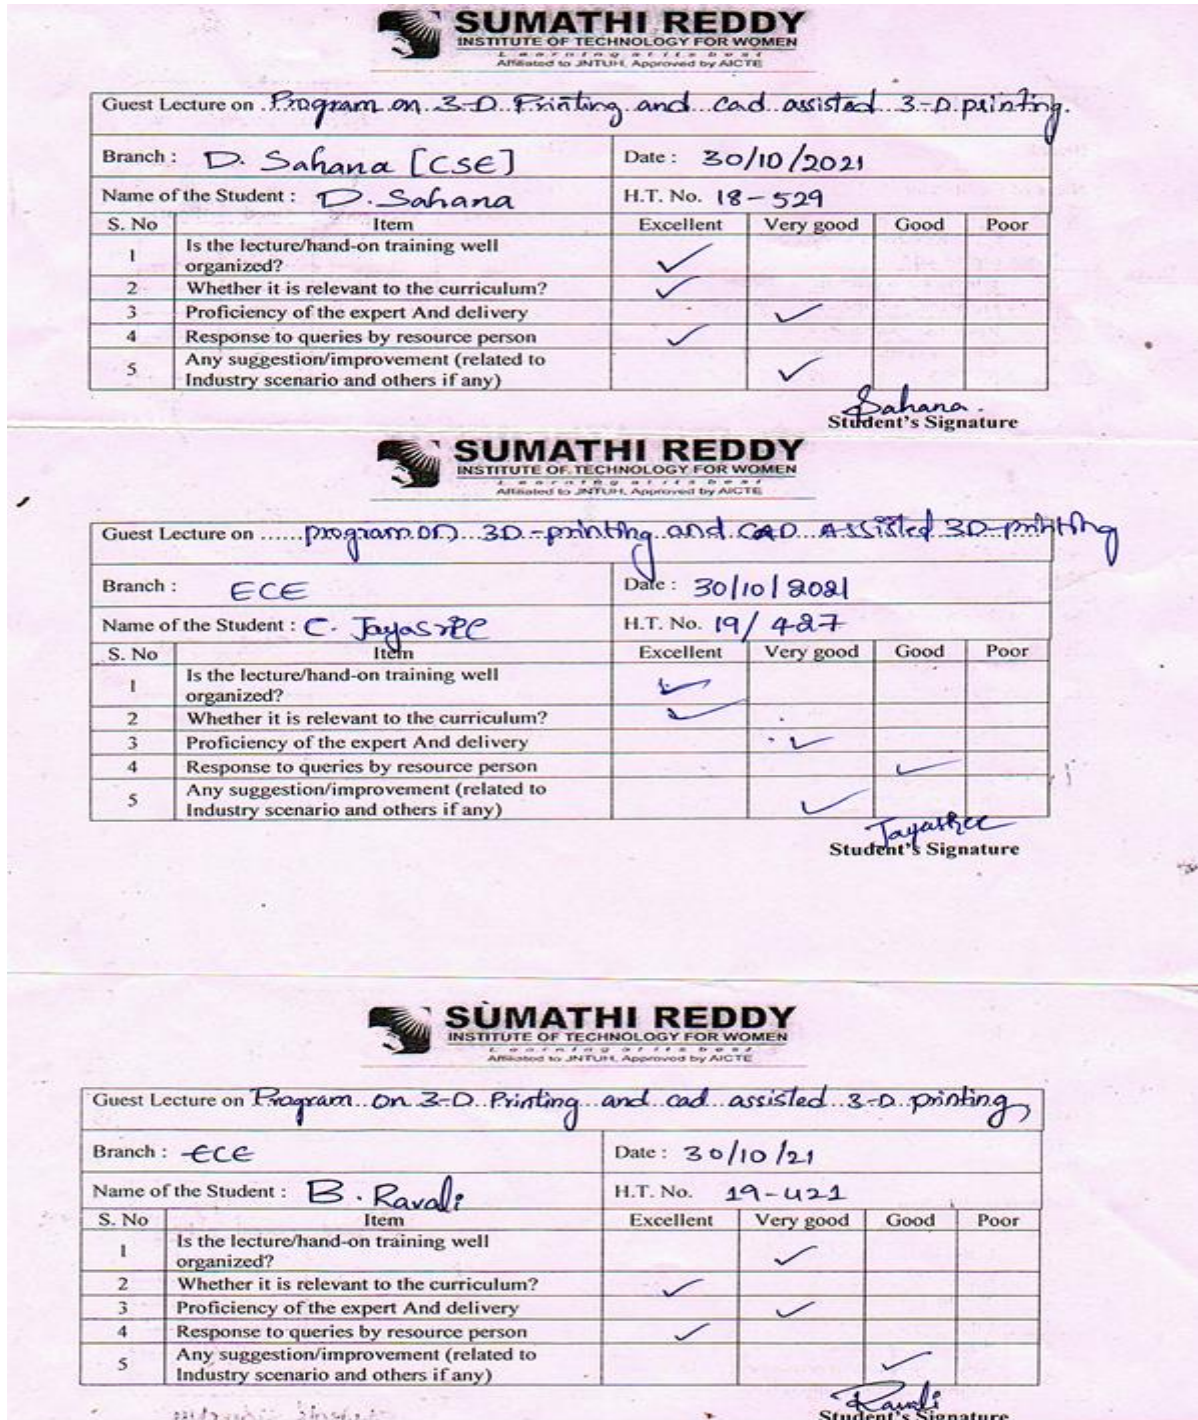 SUMATHI REDDY
INSTITUTE OF TECHNOLOGY FOR WOMEN
Learning at its best
Affiliated to JNTUH, Approved by AICTE
Guest Lecture on Program on 3-D Printing and cad assisted 3-D printing.
Branch : D. Sahana [CSE] Date : 30/10/2021
Name of the Student : D. Sahana H.T. No. 18-529
S. No Item Excellent Very good Good Poor
1 Is the lecture/hand-on training well
organized? ✓
2 Whether it is relevant to the curriculum? ✓
3 Proficiency of the expert And delivery ✓
4 Response to queries by resource person ✓
5 Any suggestion/improvement (related to
Industry scenario and others if any) ✓
Sahana.
Student's Signature
SUMATHI REDDY
INSTITUTE OF TECHNOLOGY FOR WOMEN
Learning at its best
Affiliated to JNTUH, Approved by AICTE
Guest Lecture on ...... program on 3D-printing and CAD Assisted 3D-printing
Branch : ECE Date : 30/10/2021
Name of the Student : C. Jayasree H.T. No. 19/427
S. No Item Excellent Very good Good Poor
1 Is the lecture/hand-on training well
organized? ✓
2 Whether it is relevant to the curriculum? ✓
3 Proficiency of the expert And delivery ✓
4 Response to queries by resource person ✓
5 Any suggestion/improvement (related to
Industry scenario and others if any) ✓
Jayasree
Student's Signature
SUMATHI REDDY
INSTITUTE OF TECHNOLOGY FOR WOMEN
Learning at its best
Affiliated to JNTUH, Approved by AICTE
Guest Lecture on Program on 3-D Printing and cad assisted 3-D printing
Branch : ECE Date : 30/10/21
Name of the Student : B. Ravali H.T. No. 19-421
S. No Item Excellent Very good Good Poor
1 Is the lecture/hand-on training well
organized? ✓
2 Whether it is relevant to the curriculum? ✓
3 Proficiency of the expert And delivery ✓
4 Response to queries by resource person ✓
5 Any suggestion/improvement (related to
Industry scenario and others if any) ✓
Ravali
Student's Signature